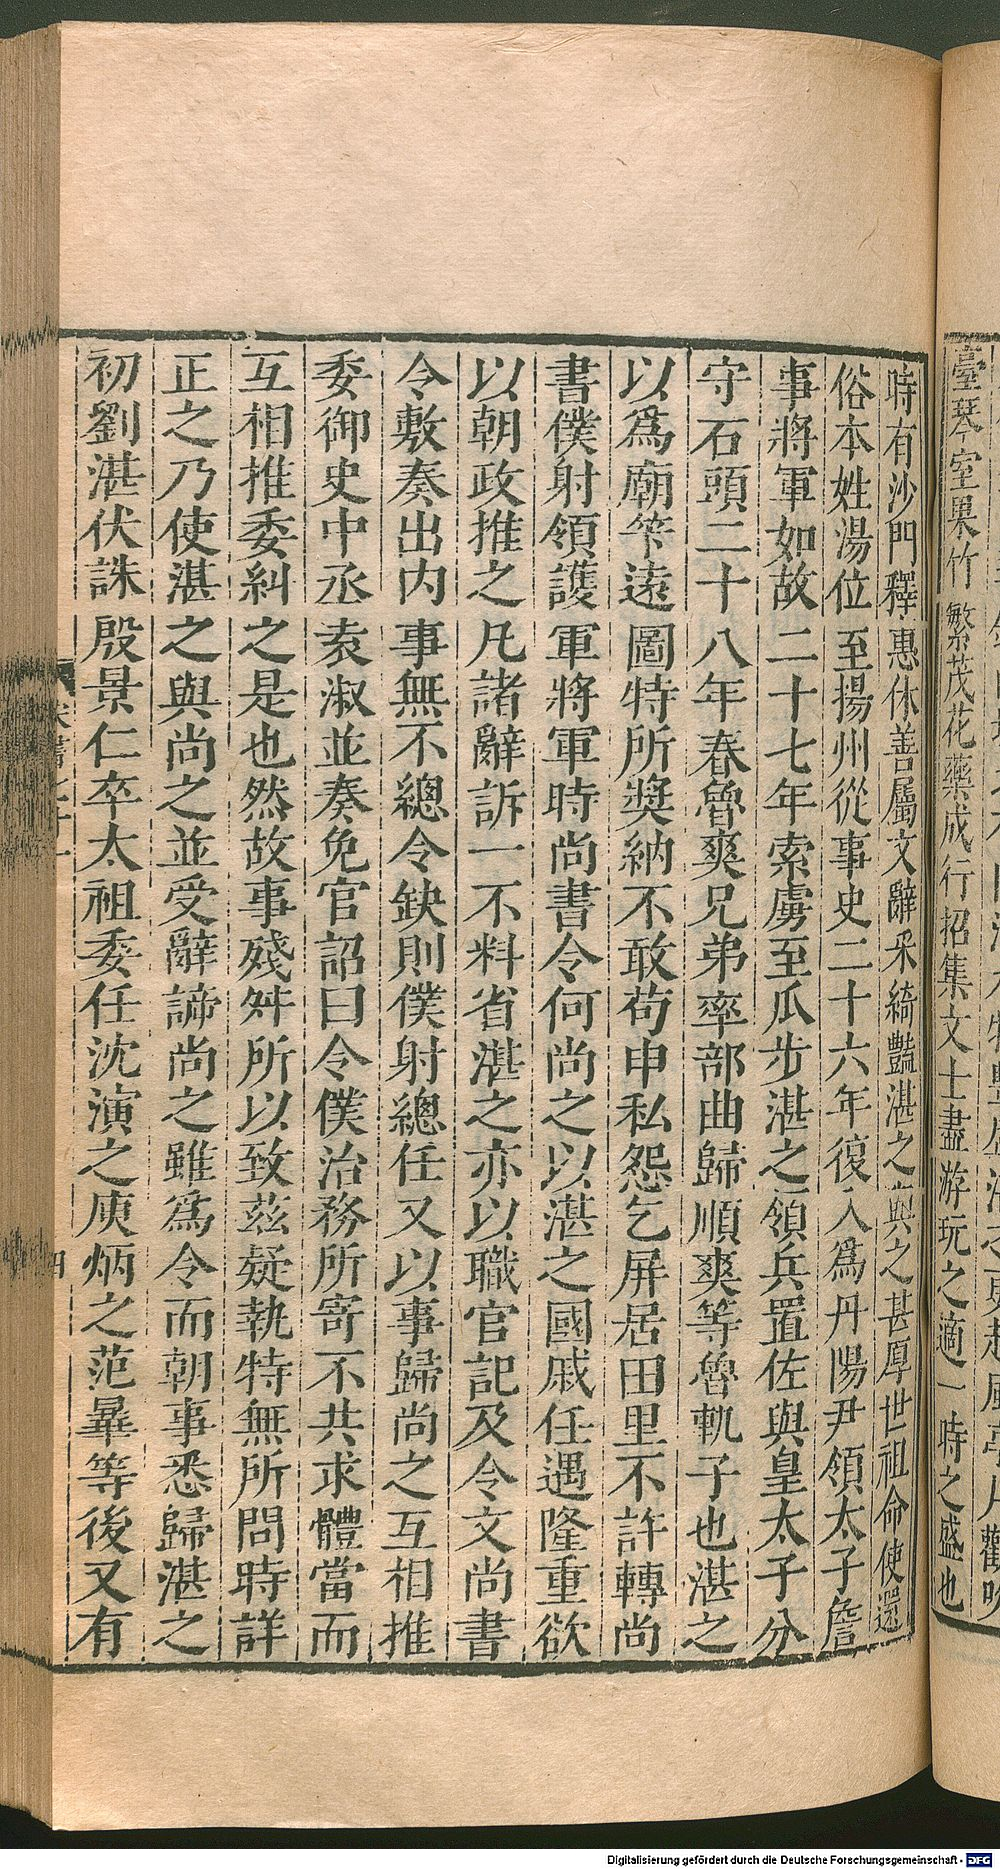 臺琴室果竹繁茂花藥成行招集文士盡游玩之適一時之盛也
時有沙門釋惠休善屬文辭采綺豔湛之與之甚厚世祖命使還
俗本姓湯位至揚州從事史二十六年復入為丹陽尹領太子詹
事將軍如故二十七年索虜至瓜步湛之領兵置佐與皇太子分
守石頭二十八年春魯爽兄弟率部曲歸順爽等魯軌子也湛之
以爲廟筭遠圖特所奬納不敢苟申私怨乞屏居田里不許轉尚
書僕射領護軍將軍時尚書令何尚之以湛之國戚任遇隆重欲
以朝政推之凡諸辭訴一不料省湛之亦以職官記及令文尚書
令敷奏出内事無不總令缺則僕射總任又以事歸尚之互相推
委御史中丞袁淑並奏免官詔曰令僕治務所寄不共求體當而
互相推委糾之是也然故事殘舛所以致茲疑執特無所問時詳
正之乃使湛之與尚之並受辭諦尚之雖爲令而朝事悉歸湛之
初劉湛伏誅殷景仁卒太祖委任沈演之庾炳之范曅等後又有
四
Digitalisierung gefördert durch die Deutsche Forschungsgemeinschaft - DFG